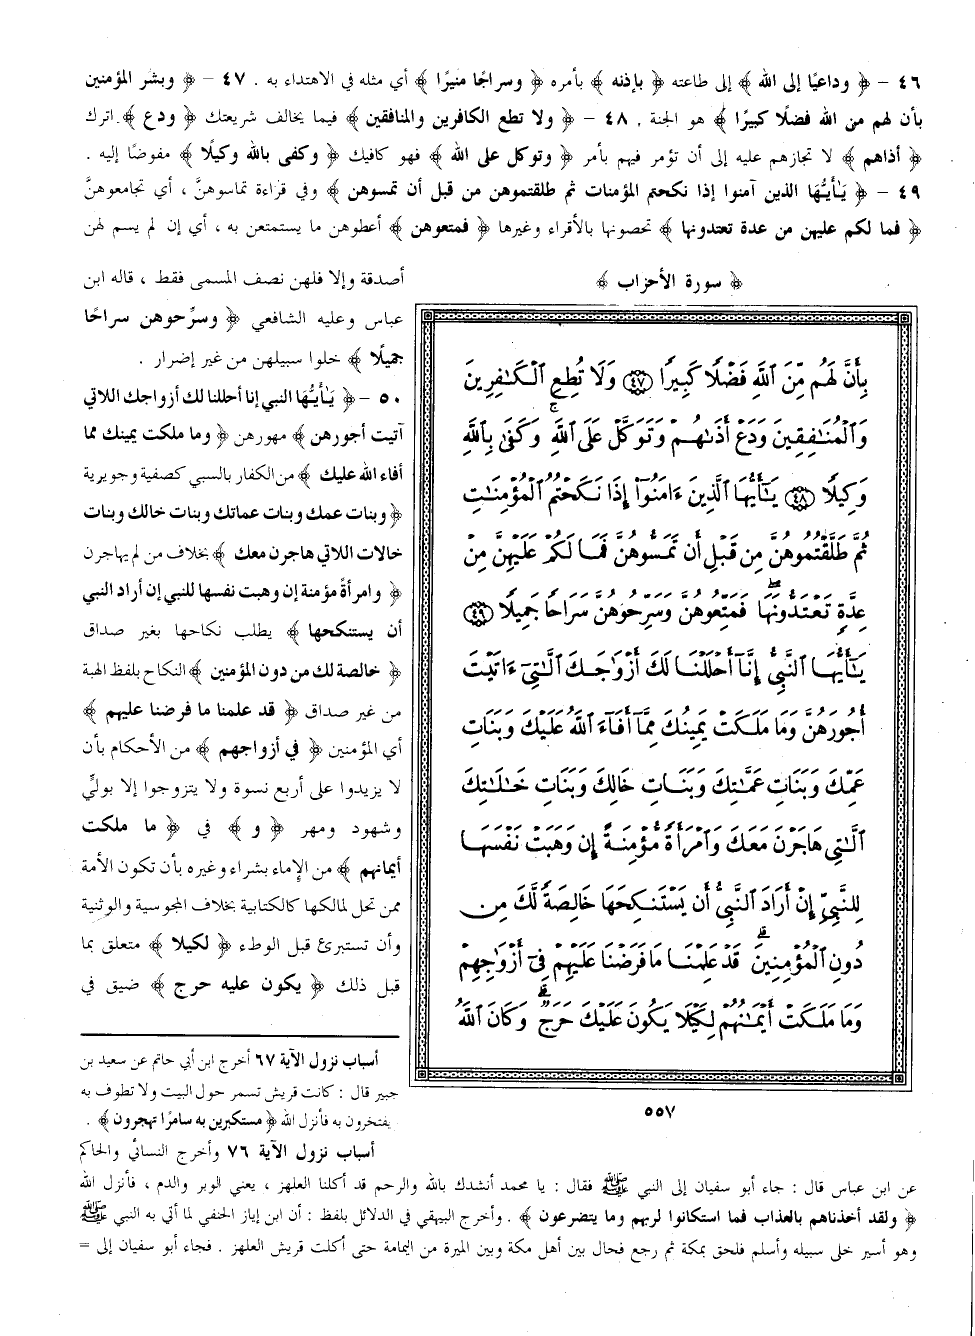 ٤٦ - ﴿ وداعيًا إلى الله ﴾ إلى طاعته ﴿ بإذنه ﴾ بأمره ﴿ وسراجًا منيرًا ﴾ أي مثله في الاهتداء به . ٤٧ - ﴿ وبشر المؤمنين
بأن لهم من الله فضلًا كبيرًا ﴾ هو الجنة . ٤٨ - ﴿ ولا تطع الكافرين والمنافقين ﴾ فيما يخالف شريعتك ﴿ ودع ﴾ اترك
﴿ أذاهم ﴾ لا تجازهم عليه إلى أن تؤمر فيهم بأمر ﴿ وتوكل على الله ﴾ فهو كافيك ﴿ وكفى بالله وكيلًا ﴾ مفوضًا إليه .
٤٩ - ﴿ يَأَيُّهَا الذين آمنوا إذا نكحتم المؤمنات ثم طلقتموهن من قبل أن تمسوهن ﴾ وفي قراءة تماسوهنَّ ، أي تجامعوهنَّ
﴿ فما لكم عليهن من عدة تعتدونها ﴾ تحصونها بالأقراء وغيرها ﴿ فمتعوهن ﴾ أعطوهن ما يستمتعن به ، أي إن لم يسم لهن
أصدقة وإلا فلهن نصف المسمى فقط ، قاله ابن
عباس وعليه الشافعي ﴿ وسرِّحوهن سراحًا
جميلًا ﴾ خلوا سبيلهن من غير إضرار .
٥٠ - ﴿ يَأَيُّهَا النبي إنا أحللنا لك أزواجك اللاتي
آتيت أجورهن ﴾ مهورهن ﴿ وما ملكت يمينك مما
أفاء الله عليك ﴾ من الكفار بالسبي كصفية وجويرية
﴿ وبنات عمك وبنات عماتك وبنات خالك وبنات
خالات اللاتي هاجرن معك ﴾ بخلاف من لم يهاجرن
﴿ وامرأةً مؤمنة إن وهبت نفسها للنبي إن أراد النبي
أن يستنكحها ﴾ يطلب نكاحها بغير صداق
﴿ خالصة لك من دون المؤمنين ﴾ النكاح بلفظ الهبة
من غير صداق ﴿ قد علمنا ما فرضنا عليهم ﴾
أي المؤمنين ﴿ في أزواجهم ﴾ من الأحكام بأن
لا يزيدوا على أربع نسوة ولا يتزوجوا إلا بوليٍّ
وشهود ومهر ﴿ و ﴾ في ﴿ ما ملكت
أيمانهم ﴾ من الإماء بشراء وغيره بأن تكون الأمة
ممن تحل لمالكها كالكتابية بخلاف المجوسية والوثنية
وأن تستبرئ قبل الوطء ﴿ لكيلا ﴾ متعلق بما
قبل ذلك ﴿ يكون عليك حرج ﴾ ضيق في
﴿ سورة الأحزاب ﴾
بِأَنَّ لَهُم مِّنَ ٱللَّهِ فَضْلًا كَبِيرًا ﴿٤٧﴾ وَلَا تُطِعِ ٱلْكَٰفِرِينَ
وَٱلْمُنَٰفِقِينَ وَدَعْ أَذَىٰهُمْ وَتَوَكَّلْ عَلَى ٱللَّهِ ۚ وَكَفَىٰ بِٱللَّهِ
وَكِيلًا ﴿٤٨﴾ يَٰٓأَيُّهَا ٱلَّذِينَ ءَامَنُوٓا۟ إِذَا نَكَحْتُمُ ٱلْمُؤْمِنَٰتِ
ثُمَّ طَلَّقْتُمُوهُنَّ مِن قَبْلِ أَن تَمَسُّوهُنَّ فَمَا لَكُمْ عَلَيْهِنَّ مِنْ
عِدَّةٍ تَعْتَدُّونَهَا ۖ فَمَتِّعُوهُنَّ وَسَرِّحُوهُنَّ سَرَاحًا جَمِيلًا ﴿٤٩﴾
يَٰٓأَيُّهَا ٱلنَّبِىُّ إِنَّآ أَحْلَلْنَا لَكَ أَزْوَٰجَكَ ٱلَّٰتِىٓ ءَاتَيْتَ
أُجُورَهُنَّ وَمَا مَلَكَتْ يَمِينُكَ مِمَّآ أَفَآءَ ٱللَّهُ عَلَيْكَ وَبَنَاتِ
عَمِّكَ وَبَنَاتِ عَمَّٰتِكَ وَبَنَاتِ خَالِكَ وَبَنَاتِ خَٰلَٰتِكَ
ٱلَّٰتِى هَاجَرْنَ مَعَكَ وَٱمْرَأَةً مُّؤْمِنَةً إِن وَهَبَتْ نَفْسَهَا
لِلنَّبِىِّ إِنْ أَرَادَ ٱلنَّبِىُّ أَن يَسْتَنكِحَهَا خَالِصَةً لَّكَ مِن
دُونِ ٱلْمُؤْمِنِينَ ۗ قَدْ عَلِمْنَا مَا فَرَضْنَا عَلَيْهِمْ فِىٓ أَزْوَٰجِهِمْ
وَمَا مَلَكَتْ أَيْمَٰنُهُمْ لِكَيْلَا يَكُونَ عَلَيْكَ حَرَجٌ ۗ وَكَانَ ٱللَّهُ
٥٥٧
أسباب نزول الآية ٦٧ أخرج ابن أبي حاتم عن سعيد بن
جبير قال : كانت قريش تسمر حول البيت ولا تطوف به
يفتخرون به فأنزل الله ﴿ مستكبرين به سامرًا تهجرون ﴾ .
أسباب نزول الآية ٧٦ وأخرج النسائي والحاكم
عن ابن عباس قال : جاء أبو سفيان إلى النبي ﷺ فقال : يا محمد أنشدك بالله والرحم قد أكلنا العلهز ، يعني الوبر والدم ، فأنزل الله
﴿ ولقد أخذناهم بالعذاب فما استكانوا لربهم وما يتضرعون ﴾ . وأخرج البيهقي في الدلائل بلفظ : أن ابن إياز الحنفي لما أتي به النبي ﷺ
وهو أسير خلى سبيله وأسلم فلحق بمكة ثم رجع فحال بين أهل مكة وبين الميرة من اليمامة حتى أكلت قريش العلهز . فجاء أبو سفيان إلى =